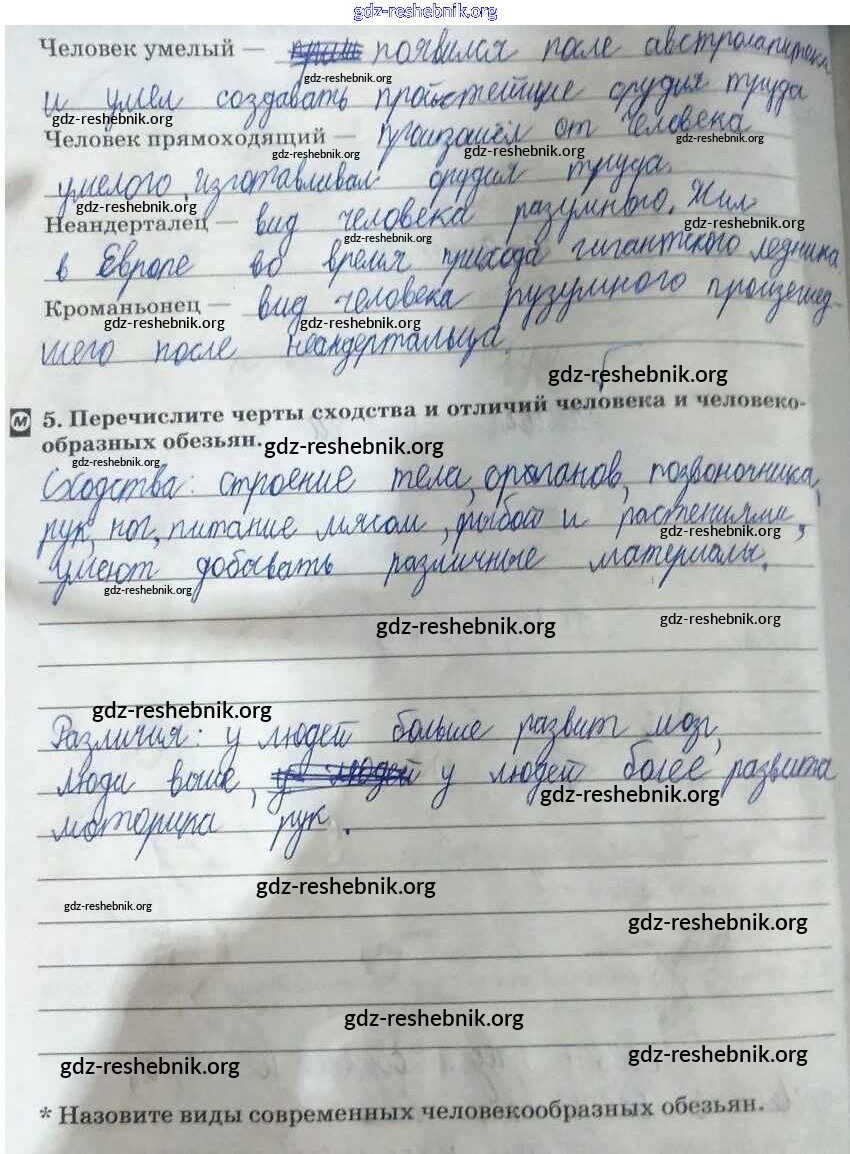 gdz-reshebnik.org
Человек умелый — появился после австролапитека
gdz-reshebnik.org
и умел создавать простейщие орудия труда
gdz-reshebnik.org
Человек прямоходящий — произашёл от человека
gdz-reshebnik.org gdz-reshebnik.org gdz-reshebnik.org
умелого, изготавливал орудия труда.
gdz-reshebnik.org
Неандерталец — вид человека разумного. Жил
gdz-reshebnik.org gdz-reshebnik.org
в Европе во время прихода гигантского ледника.
Кроманьонец — вид человека рузумного произешед-
gdz-reshebnik.org gdz-reshebnik.org
шего после неандертальца.
gdz-reshebnik.org
М 5. Перечислите черты сходства и отличий человека и человеко-
образных обезьян.
gdz-reshebnik.org gdz-reshebnik.org
Сходства: строение тела, органов, позвоночника,
рук, ног, питание мясом, рыбой и растениями,
gdz-reshebnik.org
умеют добывать различные материалы.
gdz-reshebnik.org
gdz-reshebnik.org gdz-reshebnik.org
gdz-reshebnik.org
Различия: у людей больше развит мозг,
люди выше, у людей у людей более развита
gdz-reshebnik.org
моторика рук.
gdz-reshebnik.org
gdz-reshebnik.org
gdz-reshebnik.org
gdz-reshebnik.org
gdz-reshebnik.org gdz-reshebnik.org
* Назовите виды современных человекообразных обезьян.